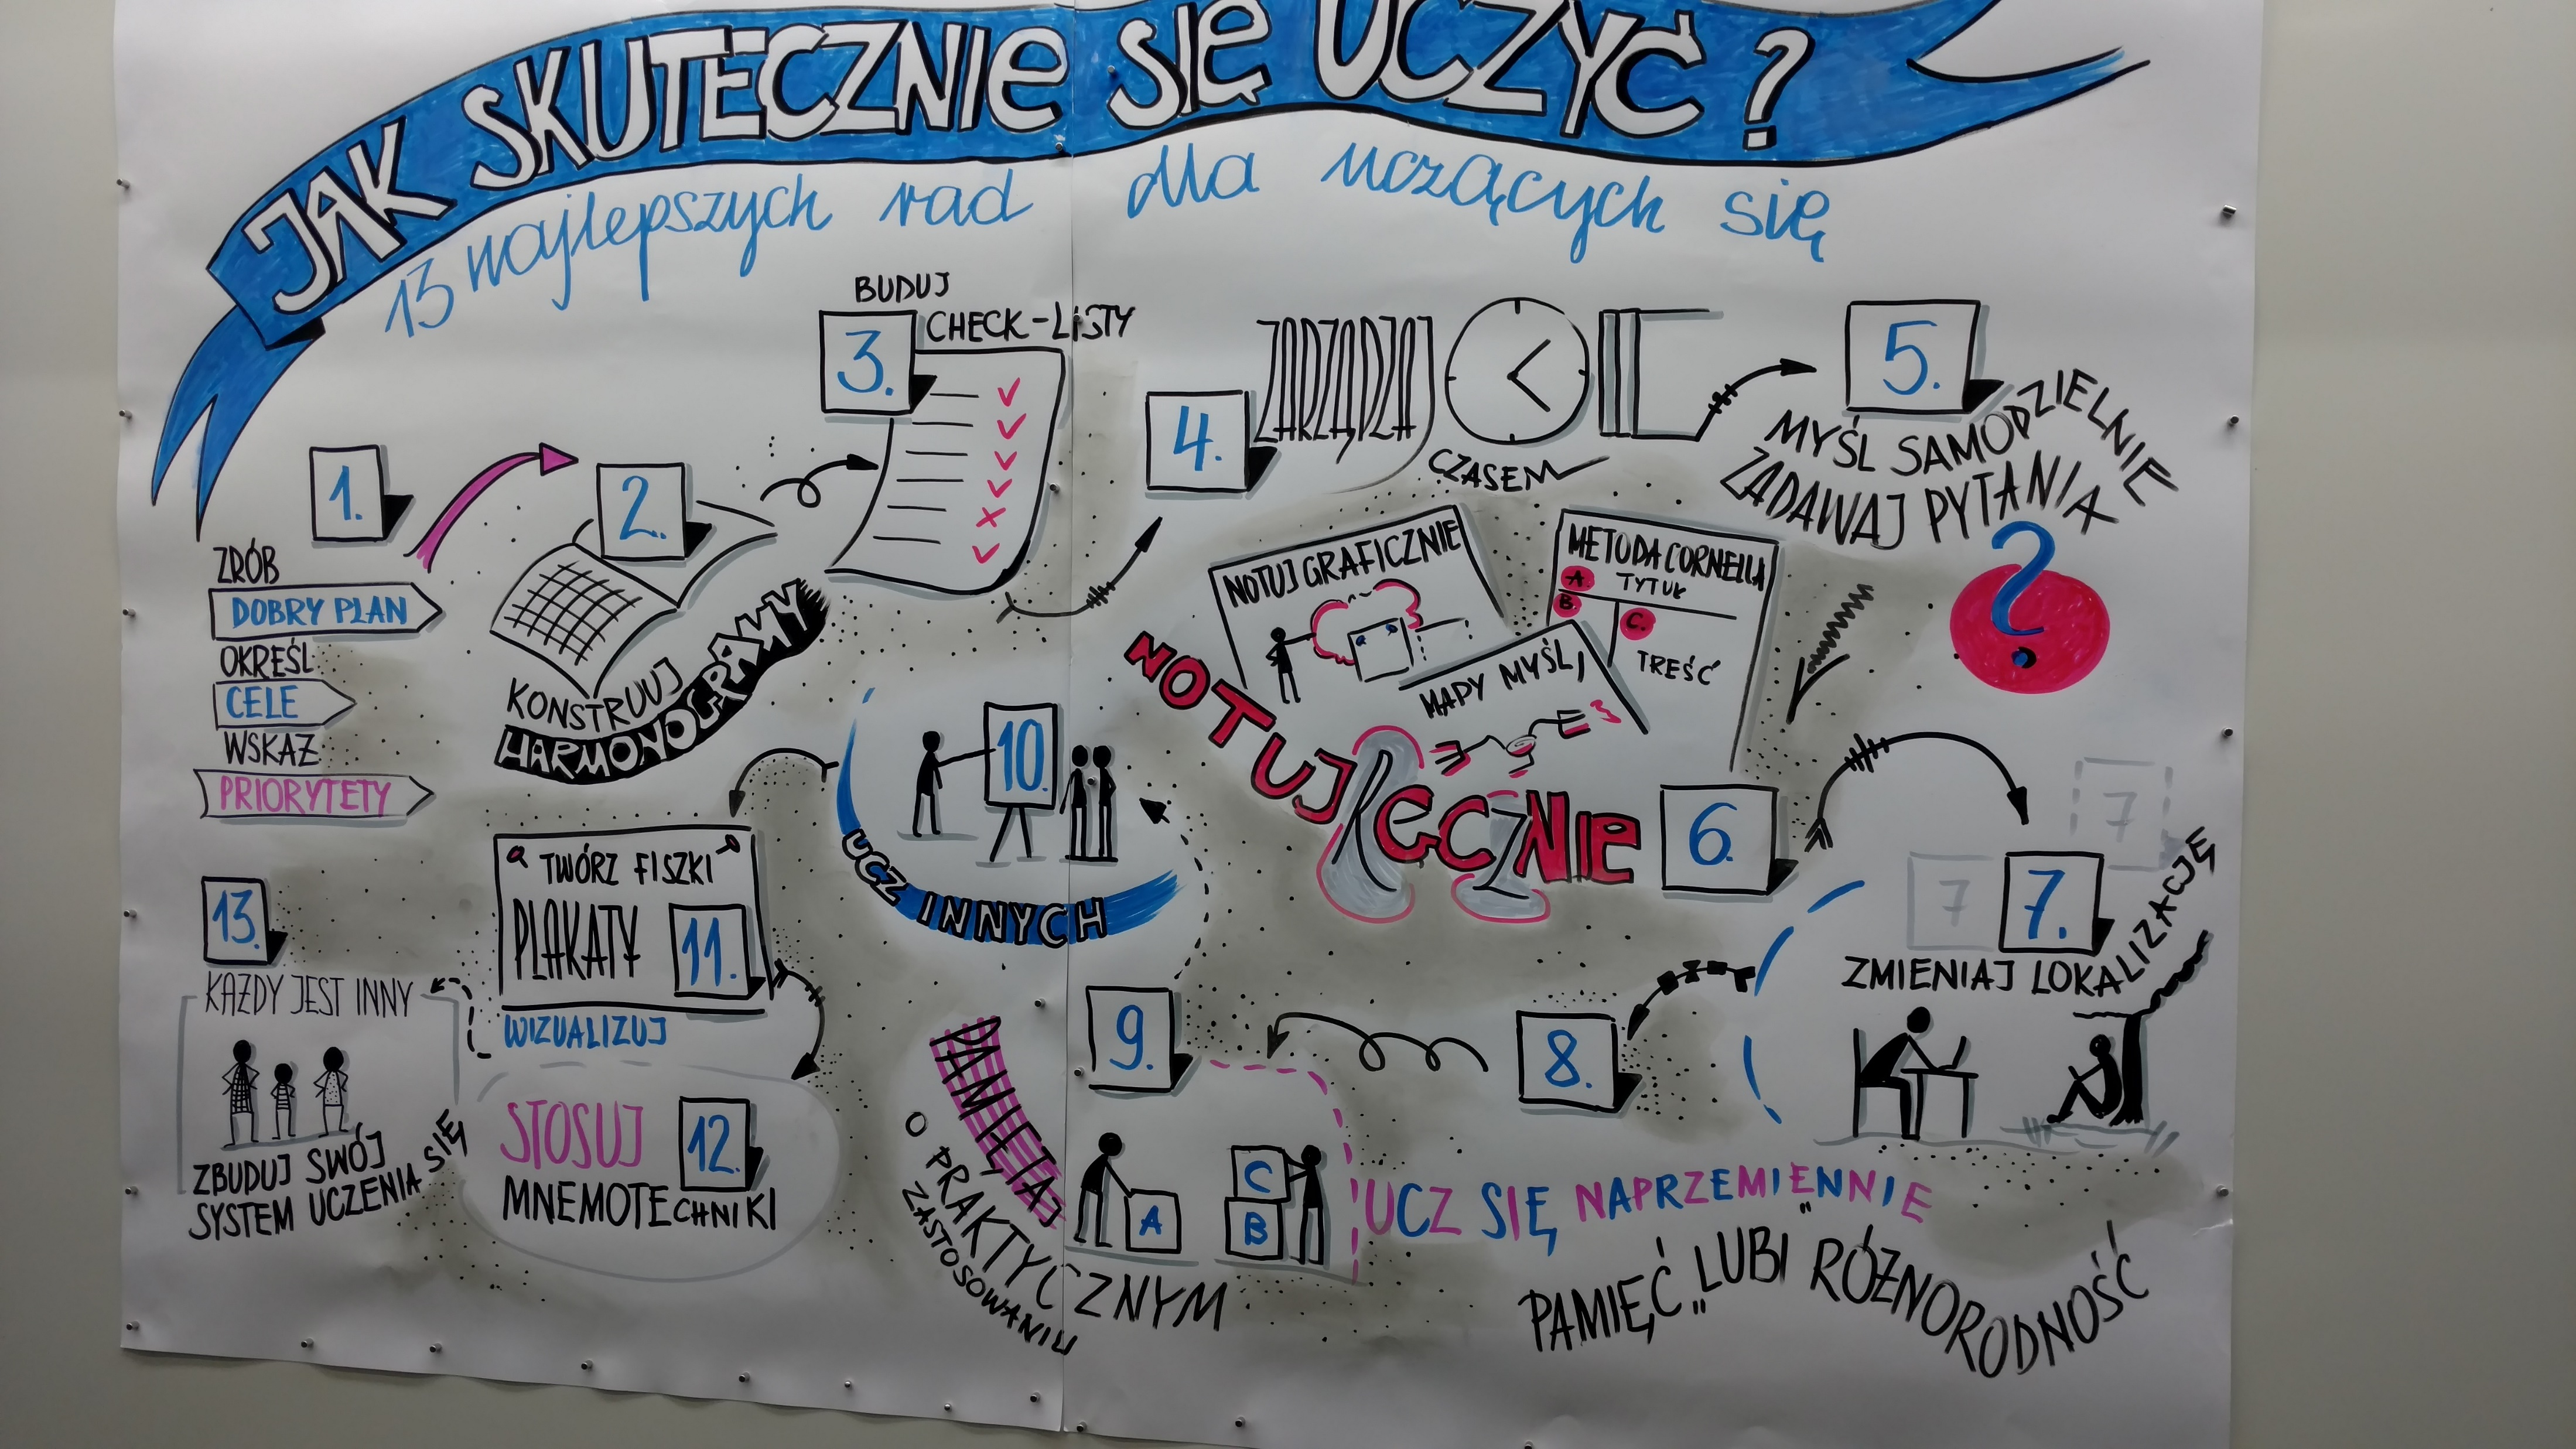 JAK SKUTECZNIE SIĘ UCZYĆ?
13 najlepszych rad dla uczących się
1.
ZRÓB
DOBRY PLAN
OKREŚL
CELE
WSKAŻ
PRIORYTETY
2.
KONSTRUUJ
HARMONOGRAMY
BUDUJ
3.
CHECK-LISTY
4.
ZARZĄDZAJ
CZASEM
5.
MYŚL SAMODZIELNIE
ZADAWAJ PYTANIA
?
NOTUJ GRAFICZNIE
METODA CORNELLA
A. TYTUŁ
B.
C.
TREŚĆ
MAPY MYŚLI
NOTUJ RĘCZNIE
6.
7
7
7.
ZMIENIAJ LOKALIZACJĘ
8.
UCZ SIĘ NAPRZEMIENNIE
PAMIĘĆ „LUBI” RÓŻNORODNOŚĆ
9.
PAMIĘTAJ
O PRAKTYCZNYM
ZASTOSOWANIU
A
C
B
10.
UCZ INNYCH
TWÓRZ FISZKI
PLAKATY
11.
WIZUALIZUJ
STOSUJ
12.
MNEMOTECHNIKI
13.
KAŻDY JEST INNY
ZBUDUJ SWÓJ
SYSTEM UCZENIA SIĘ